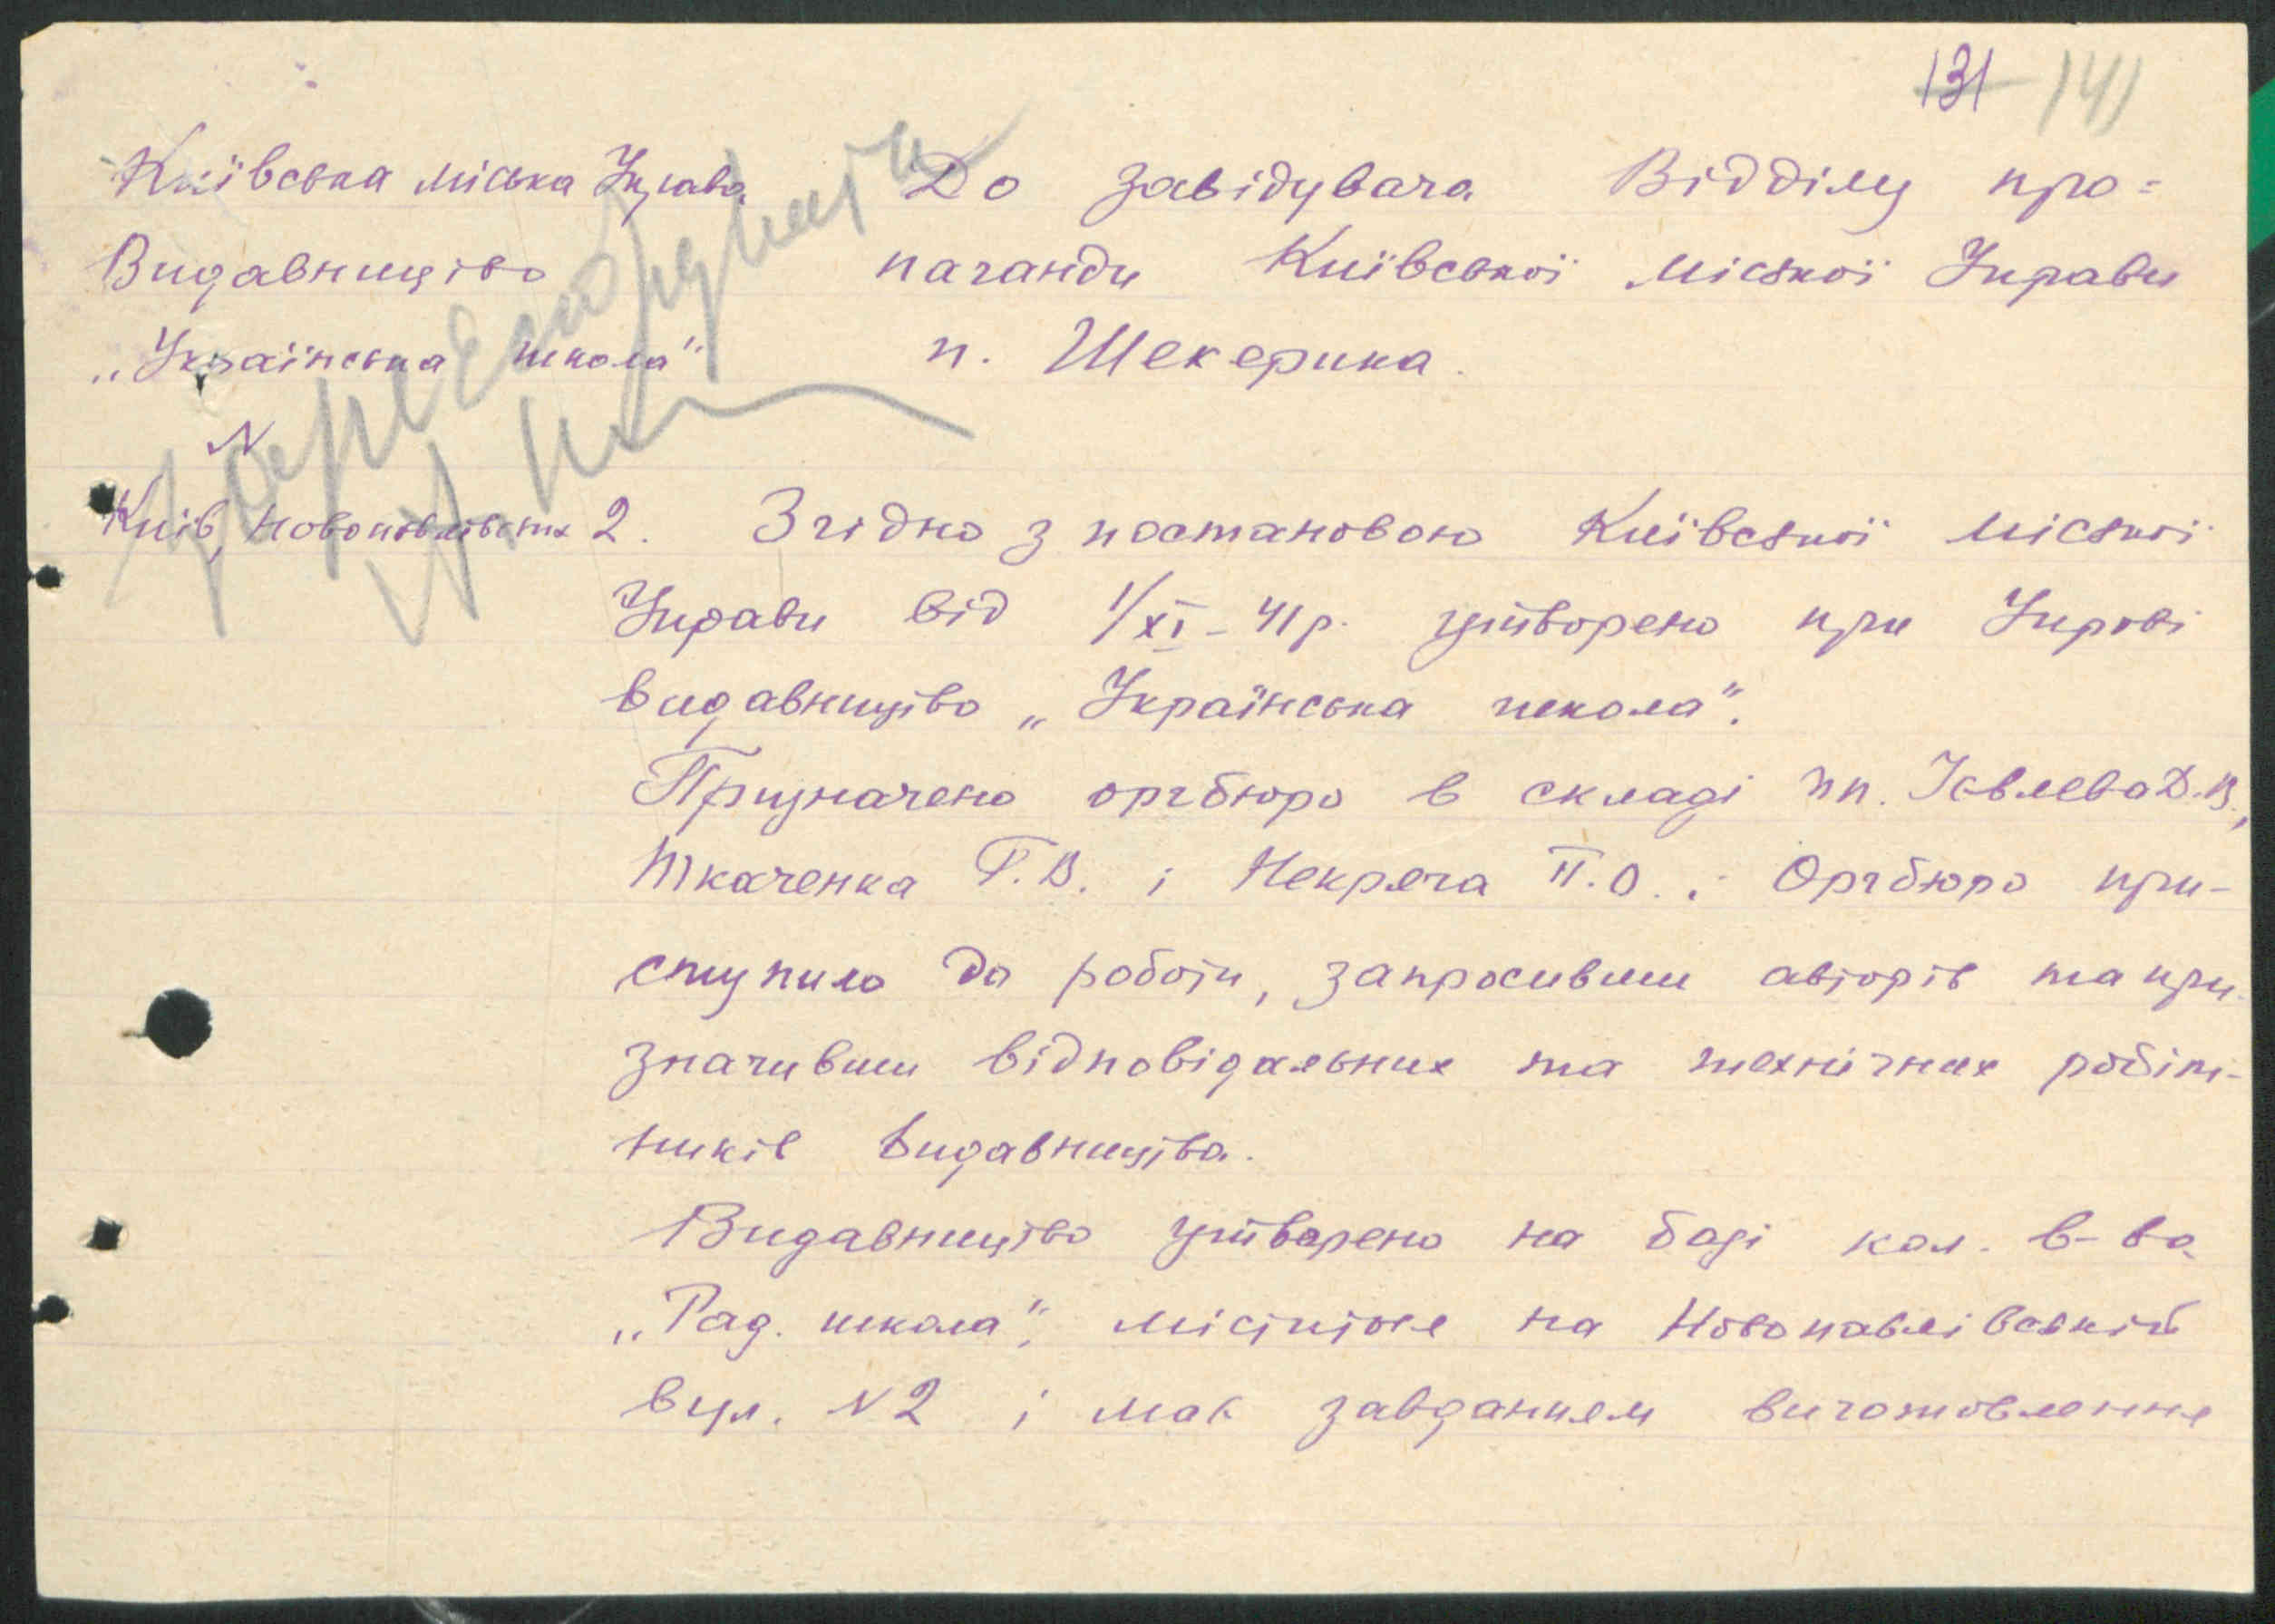 131 141
Київська міська Управа
Видавництво
„Українська школа"
N
Київ, Новопавлівська 2.
До завідувача Відділу про=
паганди Київської міської Управи
п. Шекерика.
Згідно з постановою Київської міської
Управи від 1/XI-41р. утворено при Управі
видавництво „Українська школа".
Призначено оргбюро в складі пп. Ієвлева Д.В.,
Ткаченка Г.В. і Некряча П.О. Оргбюро при-
ступило до роботи, запросивши авторів та при-
значивши відповідальних та технічних робіт-
ників видавництва.
Видавництво утворено на базі кол. в-ва
„Рад. школа", міститься на Новопавлівській
вул. N2 і має завданням виготовлення